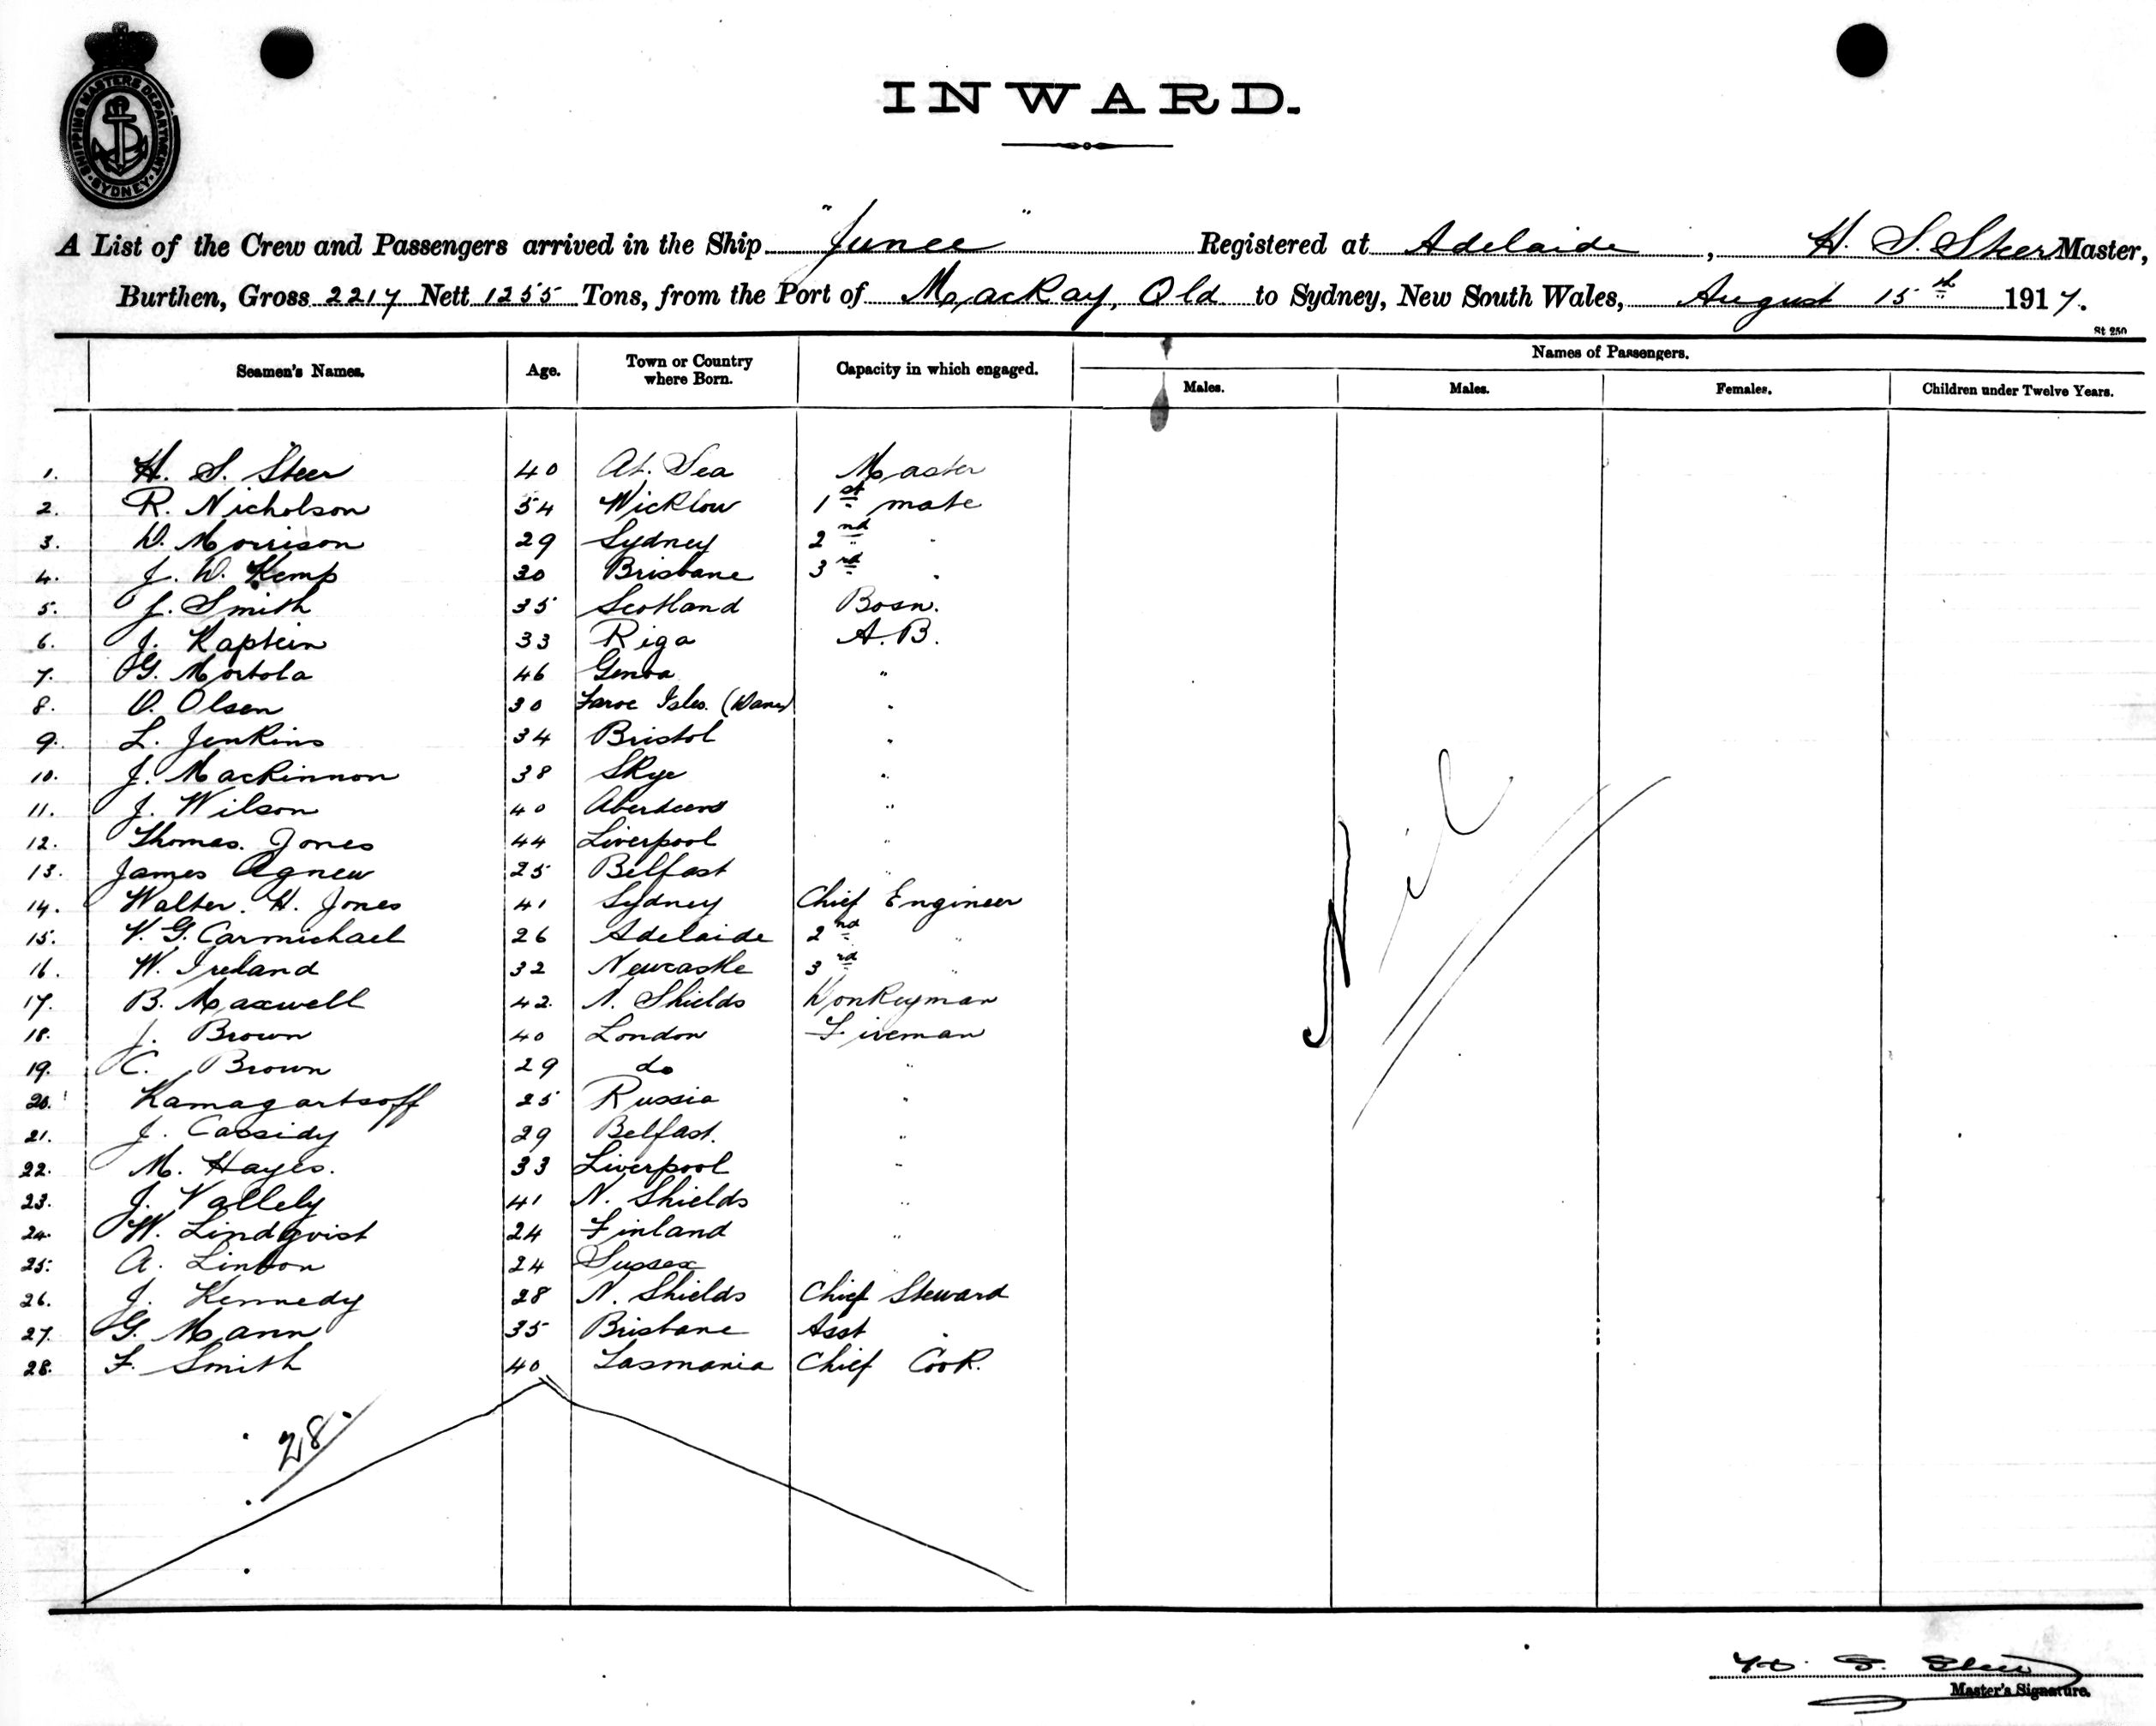 SHIPPING MASTERS DEPARTMENT
SYDNEY
INWARD.
A List of the Crew and Passengers arrived in the Ship "Junee" Registered at Adelaide, H. S. Steer Master,
Burthen, Gross 2217 Nett 1255 Tons, from the Port of Mackay, Qld to Sydney, New South Wales, August 15th 1917.
St 250
Seamen's Names. Age. Town or Country where Born. Capacity in which engaged. Names of Passengers.
Males. Males. Females. Children under Twelve Years.
1. H. S. Steer 40 At Sea Master
2. R. Nicholson 54 Wicklow 1st mate
3. D. Morrison 29 Sydney 2nd "
4. J. D. Kemp 30 Brisbane 3rd "
5. J. Smith 35 Scotland Bosn.
6. J. Kaptein 33 Riga A.B.
7. G. Mortola 46 Genoa "
8. O. Olsen 30 Faroe Isles. (Danes) "
9. L. Jenkins 34 Bristol "
10. J. Mackinnon 38 Skye "
11. J. Wilson 40 Aberdeen "
12. Thomas. Jones 44 Liverpool "
13. James Agnew 25 Belfast "
14. Walter. H. Jones 41 Sydney Chief Engineer
15. V. G. Carmichael 26 Adelaide 2nd "
16. W. Ireland 32 Newcastle 3rd "
17. B. Maxwell 42 N. Shields Donkeyman
18. J. Brown 40 London Fireman
19. C. Brown 29 do "
20. Kamagartsoff 25 Russia "
21. J. Cassidy 29 Belfast. "
22. M. Hayes. 33 Liverpool "
23. J. Vallely 41 N. Shields "
24. W. Lindqvist 24 Finland "
25. A. Linton 24 Sussex "
26. J. Kennedy 28 N. Shields Chief Steward
27. G. Mann 35 Brisbane Asst "
28. F. Smith 40 Tasmania Chief Cook.
Nil
28
H. S. Steer
Master's Signature.